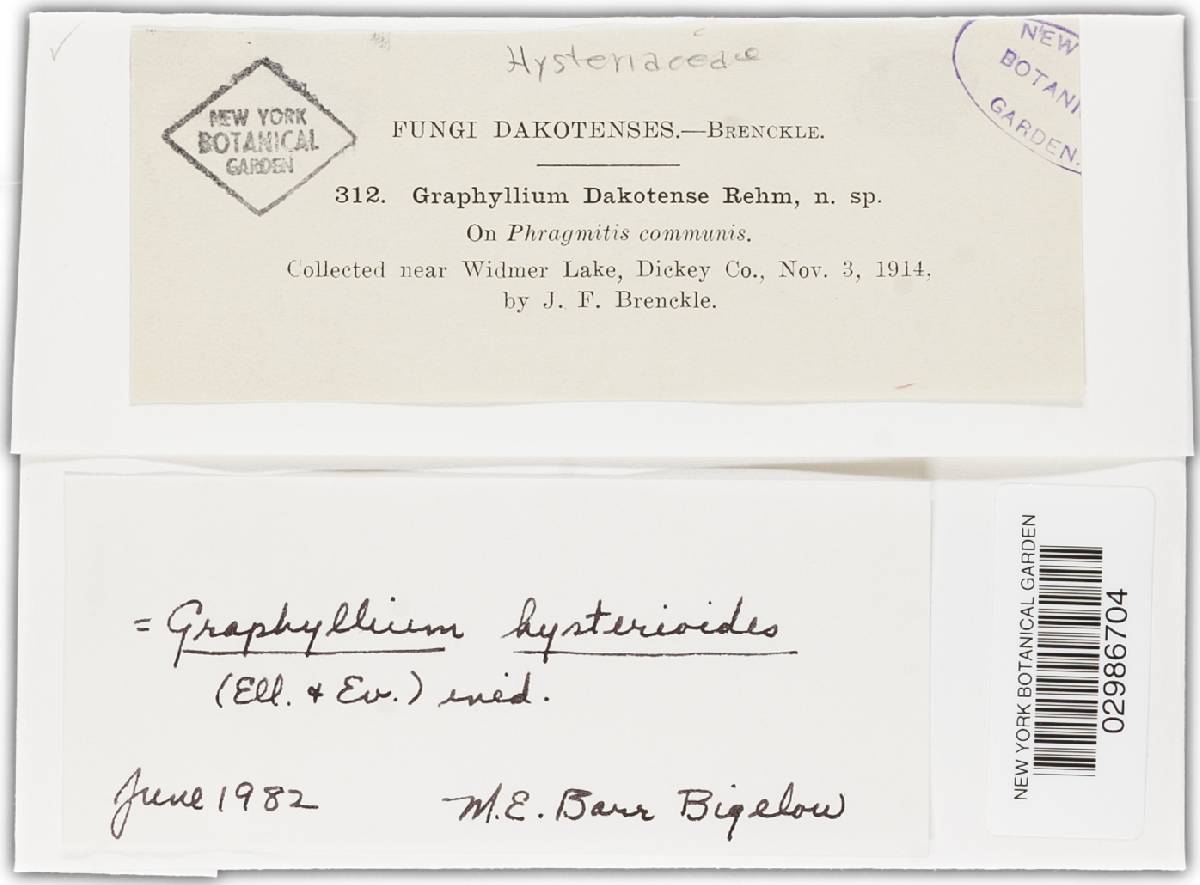 Hysteriaceae
NEW YORK
BOTANICAL
GARDEN
NEW
BOTANI
GARDEN.
FUNGI DAKOTENSES.—BRENCKLE.
312. Graphyllium Dakotense Rehm, n. sp.
On Phragmitis communis.
Collected near Widmer Lake, Dickey Co., Nov. 3, 1914,
by J. F. Brenckle.
= Graphyllium hysterioides
(Ell. & Ev.) ined.
June 1982 M.E. Barr Bigelow
NEW YORK BOTANICAL GARDEN
02986704